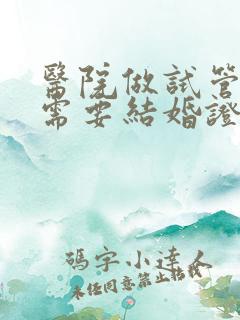 醫院做試管
需要結婚證
碼字小達人
未經同意禁止轉載